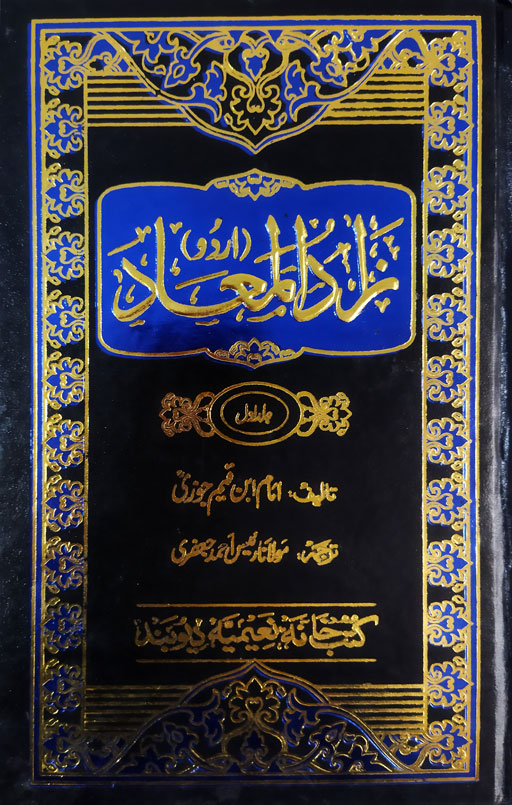 زاد المعاد (اردو)
جلد اول
تالیف: امام ابن قیم جوزی
ترجمہ: مولانا رئیس احمد جعفری
کتب خانہ نعیمیہ دیوبند